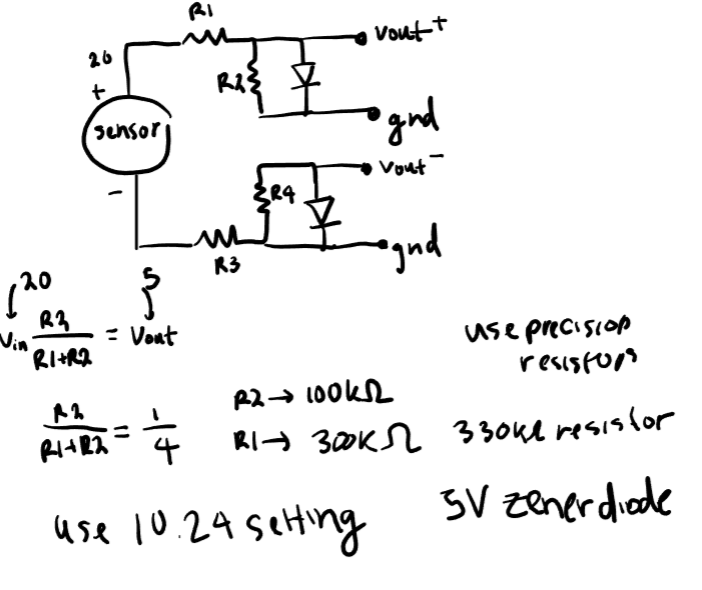 R1
20
vout+
R2
+
sensor
gnd
vout-
-
R4
gnd
R3
20
5
Vin R2/R1+R2 = Vout
use precision
resistors
R2/R1+R2 = 1/4
R2 → 100kΩ
R1 → 300KΩ
330kΩ resistor
use 10.24 setting
5V zener diode